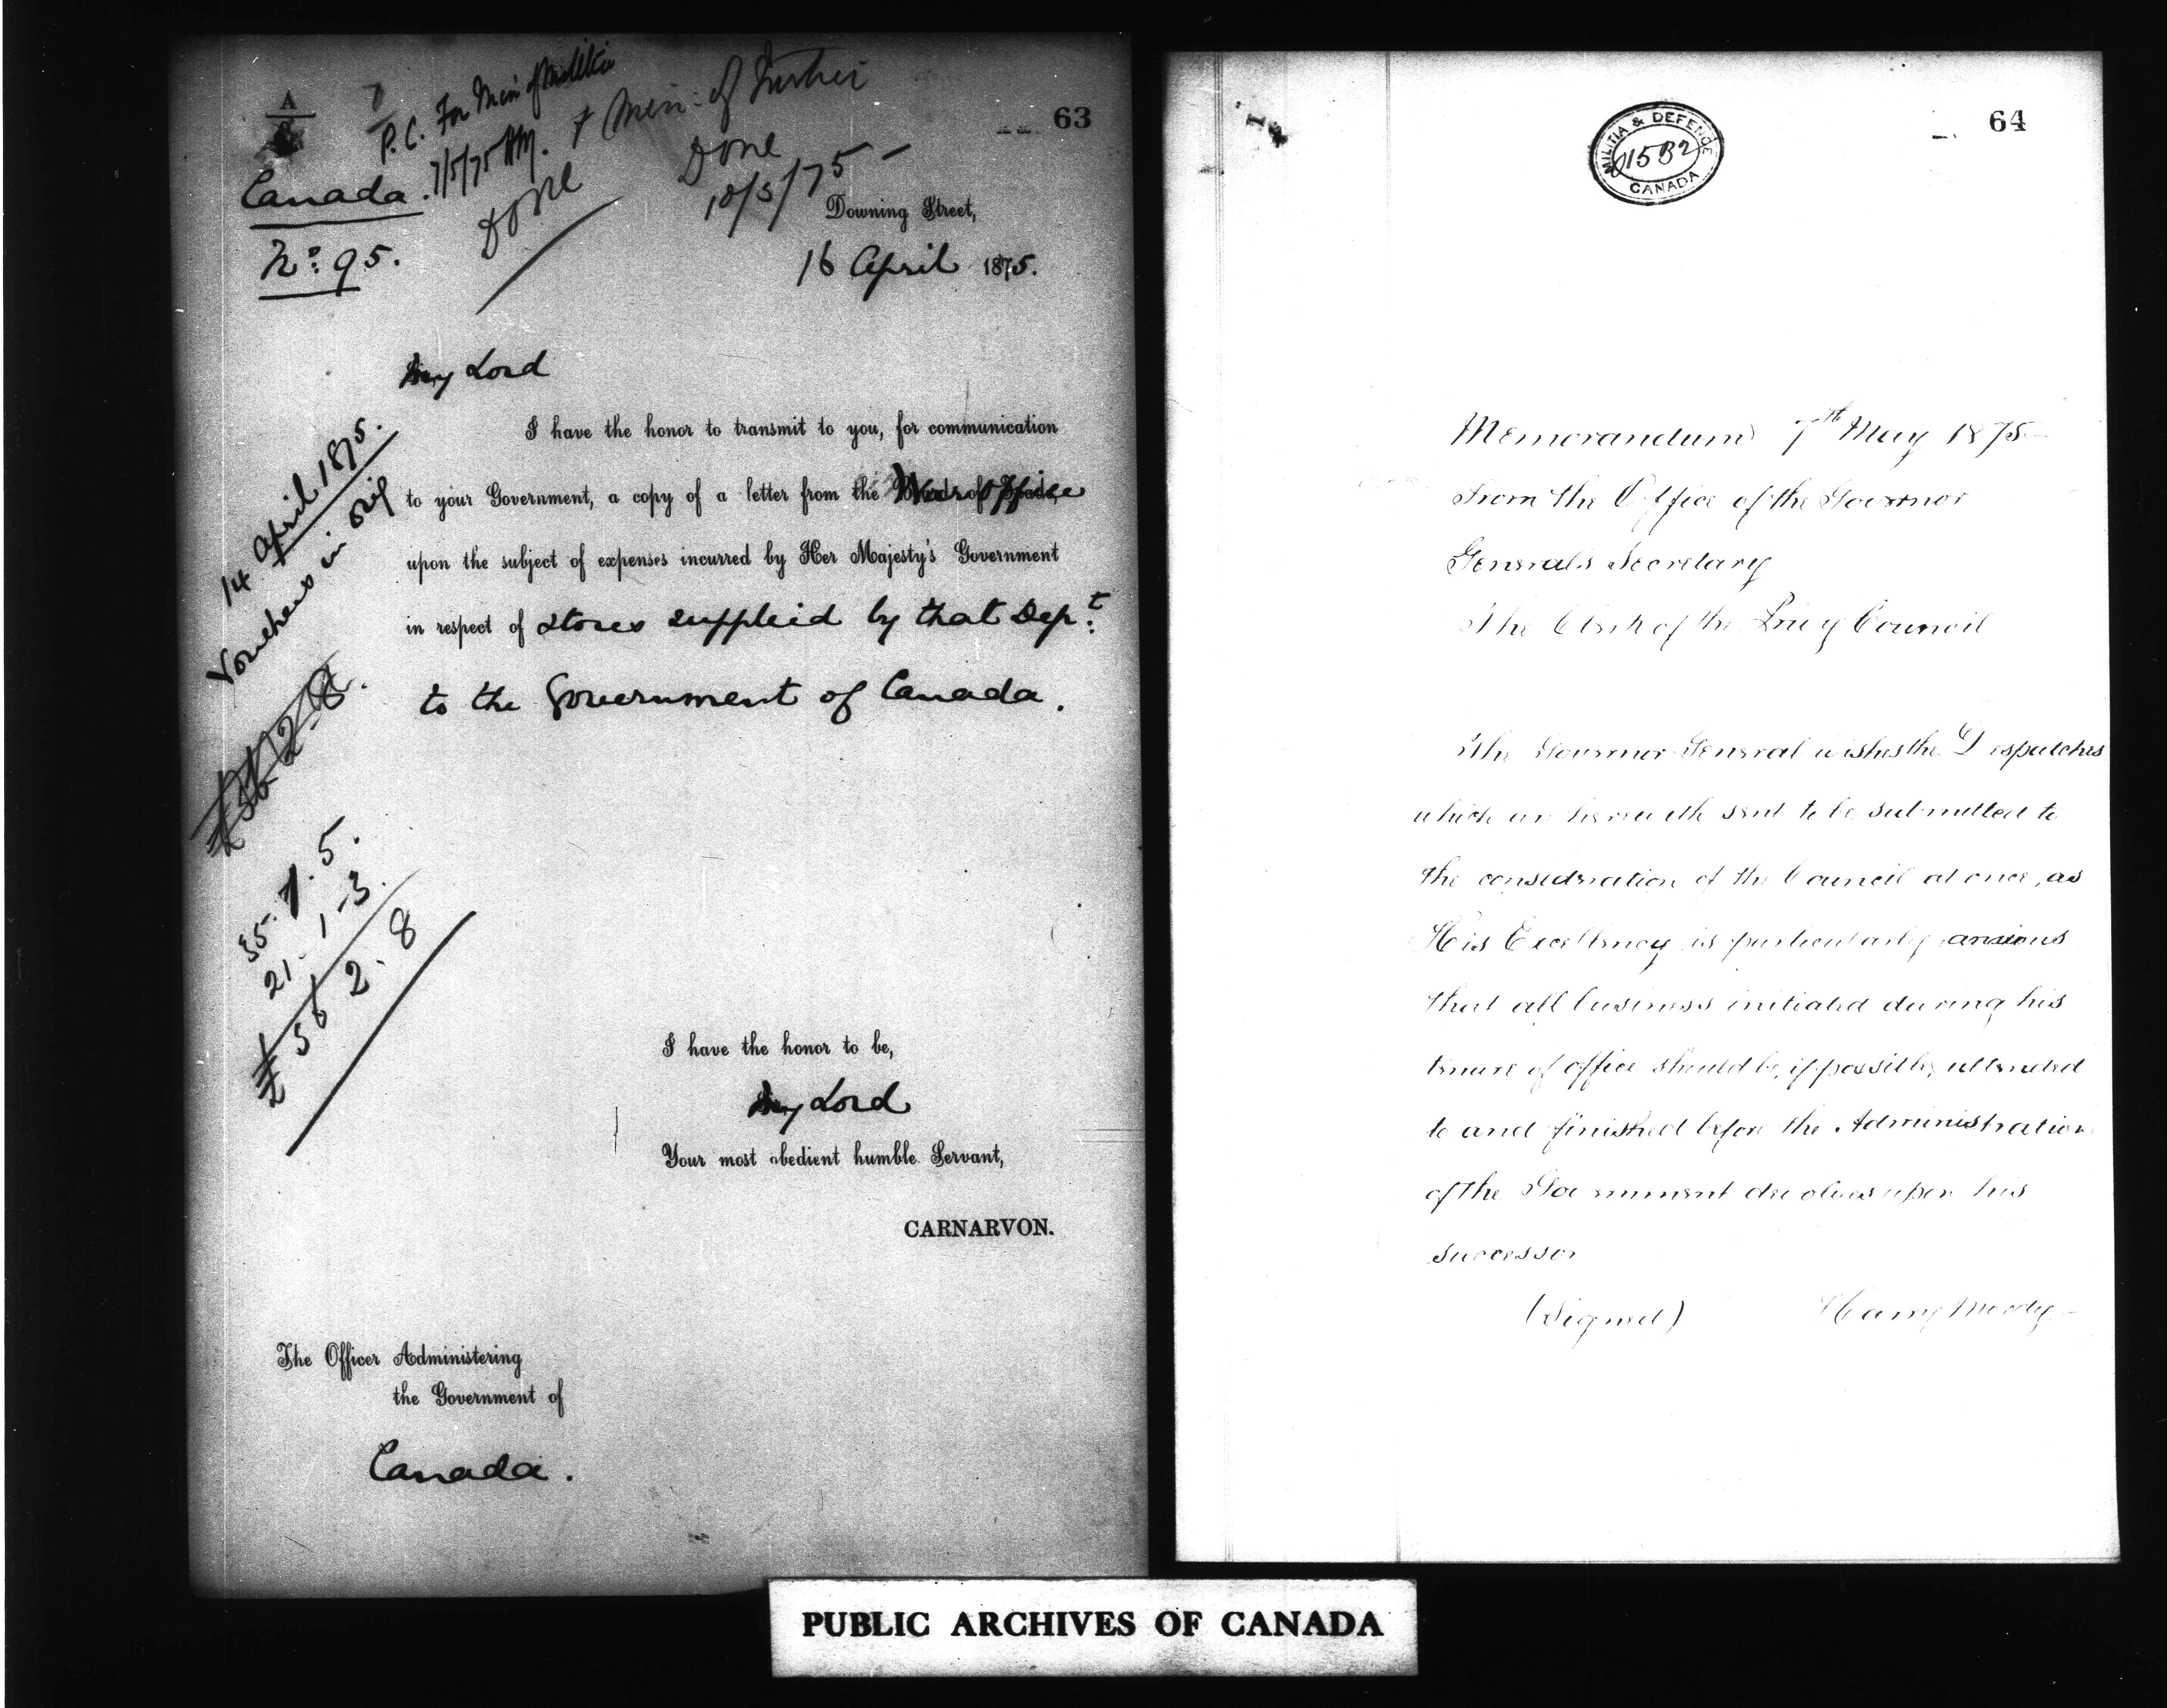 A
P.C. For Min of Militia
7/5/75 HM. + Min: of Justice
63
Done
Done
10/5/75
Canada.
No. 95.
Downing Street,
16 April 1875.
My Lord
I have the honor to transmit to you, for communication
to your Government, a copy of a letter from the War Office
upon the subject of expenses incurred by Her Majesty's Government
in respect of stores supplied by that Dept.
to the Government of Canada.
14 April 1875.
Vouchers in orig
£56-2-8.
35. 1. 5.
21. 1-3.
£56 2. 8
I have the honor to be,
My Lord
Your most obedient humble Servant,
CARNARVON.
The Officer Administering
the Government of
Canada.
64
MILITIA & DEFENCE
1582
CANADA
Memorandum 7th May 1875
From the Office of the Governor
Generals Secretary
The Clerk of the Privy Council
The Governor General wishes the Despatches
which are herewith sent to be submitted to
the consideration of the Council at once, as
His Excellency is particularly anxious
that all business initiated during his
tenure of office should be, if possible, attended
to and finished before the Administration
of the Government devolves upon his
successor
(Signed) Harry Moody
PUBLIC ARCHIVES OF CANADA